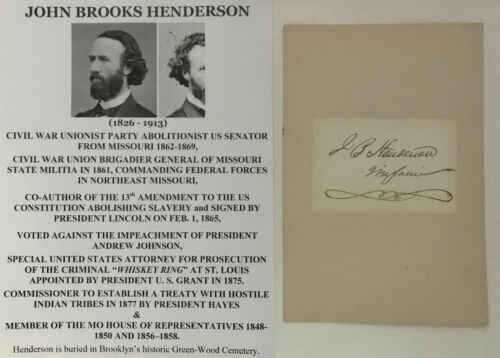 JOHN BROOKS HENDERSON
(1826 - 1913)
CIVIL WAR UNIONIST PARTY ABOLITIONIST US SENATOR
FROM MISSOURI 1862-1869,
CIVIL WAR UNION BRIGADIER GENERAL OF MISSOURI
STATE MILITIA IN 1861, COMMANDING FEDERAL FORCES
IN NORTHEAST MISSOURI,
CO-AUTHOR OF THE 13th AMENDMENT TO THE US
CONSTITUTION ABOLISHING SLAVERY and SIGNED BY
PRESIDENT LINCOLN ON FEB. 1, 1865,
VOTED AGAINST THE IMPEACHMENT OF PRESIDENT
ANDREW JOHNSON,
SPECIAL UNITED STATES ATTORNEY FOR PROSECUTION
OF THE CRIMINAL "WHISKEY RING" AT ST. LOUIS
APPOINTED BY PRESIDENT U. S. GRANT IN 1875.
COMMISSIONER TO ESTABLISH A TREATY WITH HOSTILE
INDIAN TRIBES IN 1877 BY PRESIDENT HAYES
&
MEMBER OF THE MO HOUSE OF REPRESENTATIVES 1848-
1850 AND 1856–1858.
Henderson is buried in Brooklyn's historic Green-Wood Cemetery.
J. B. Henderson
Missouri